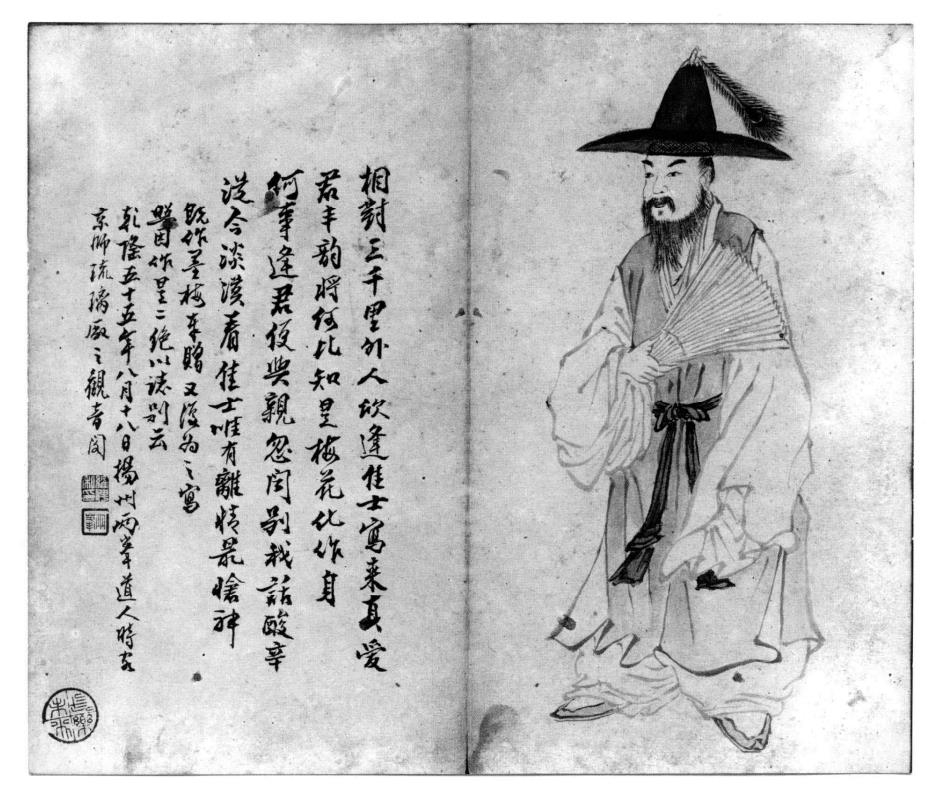 相對三千里外人欣逢佳士寫来真愛
君丰韻將何比知是梅花化作身
何事逢君便與親忽聞别我話酸辛
從今淡漠看佳士唯有離情最愴神
既作墨梅奉贈又復為之寫
照因作是二絶以誌别云
乾隆五十五年八月十八日揚州兩峯道人時客
京師琉璃廠之觀音閣